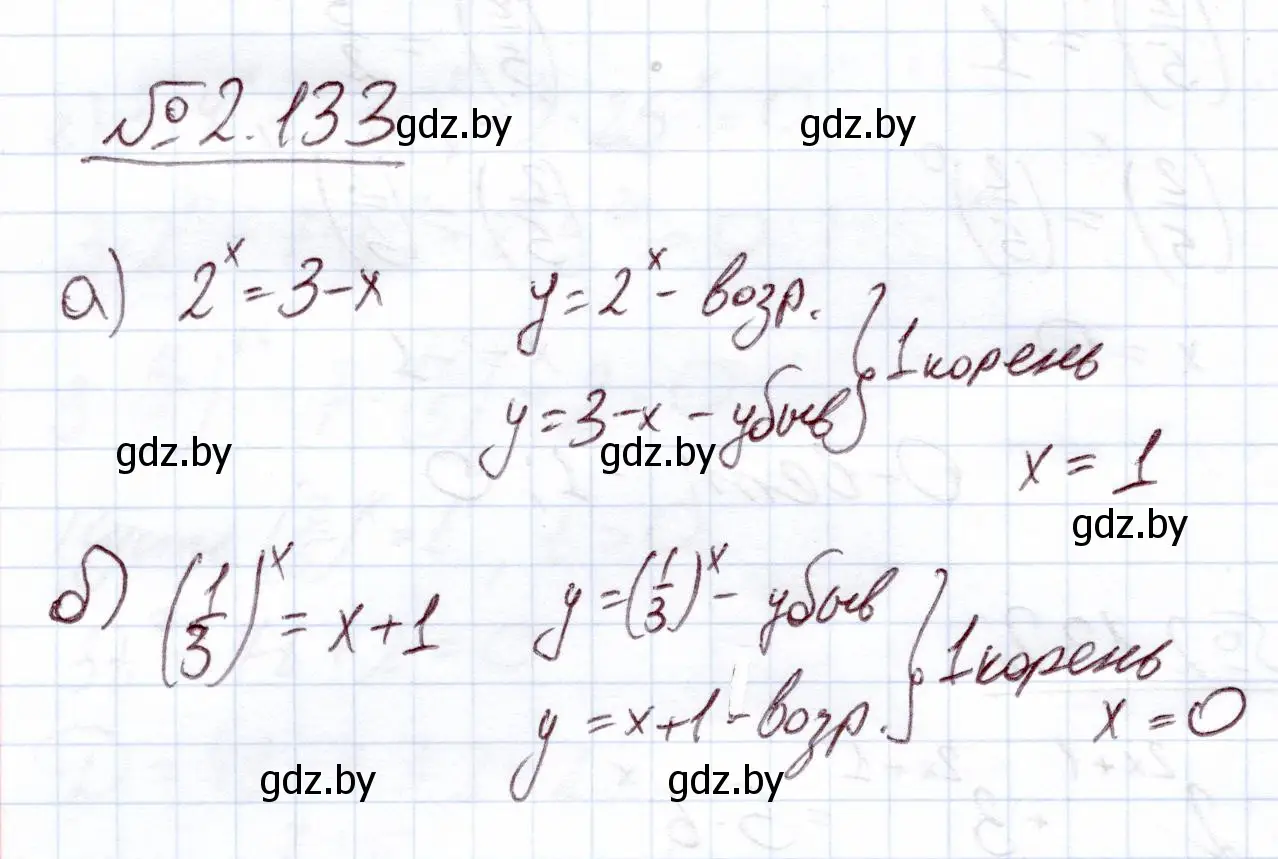 № 2.133
gdz.by gdz.by
а) 2ˣ = 3 - x y = 2ˣ - возр.
y = 3 - x - убыв } 1 корень
gdz.by gdz.by
x = 1
gdz.by
б) (1/3)ˣ = x + 1 y = (1/3)ˣ - убыв
y = x + 1 - возр. } 1 корень
x = 0
gdz.by gdz.by